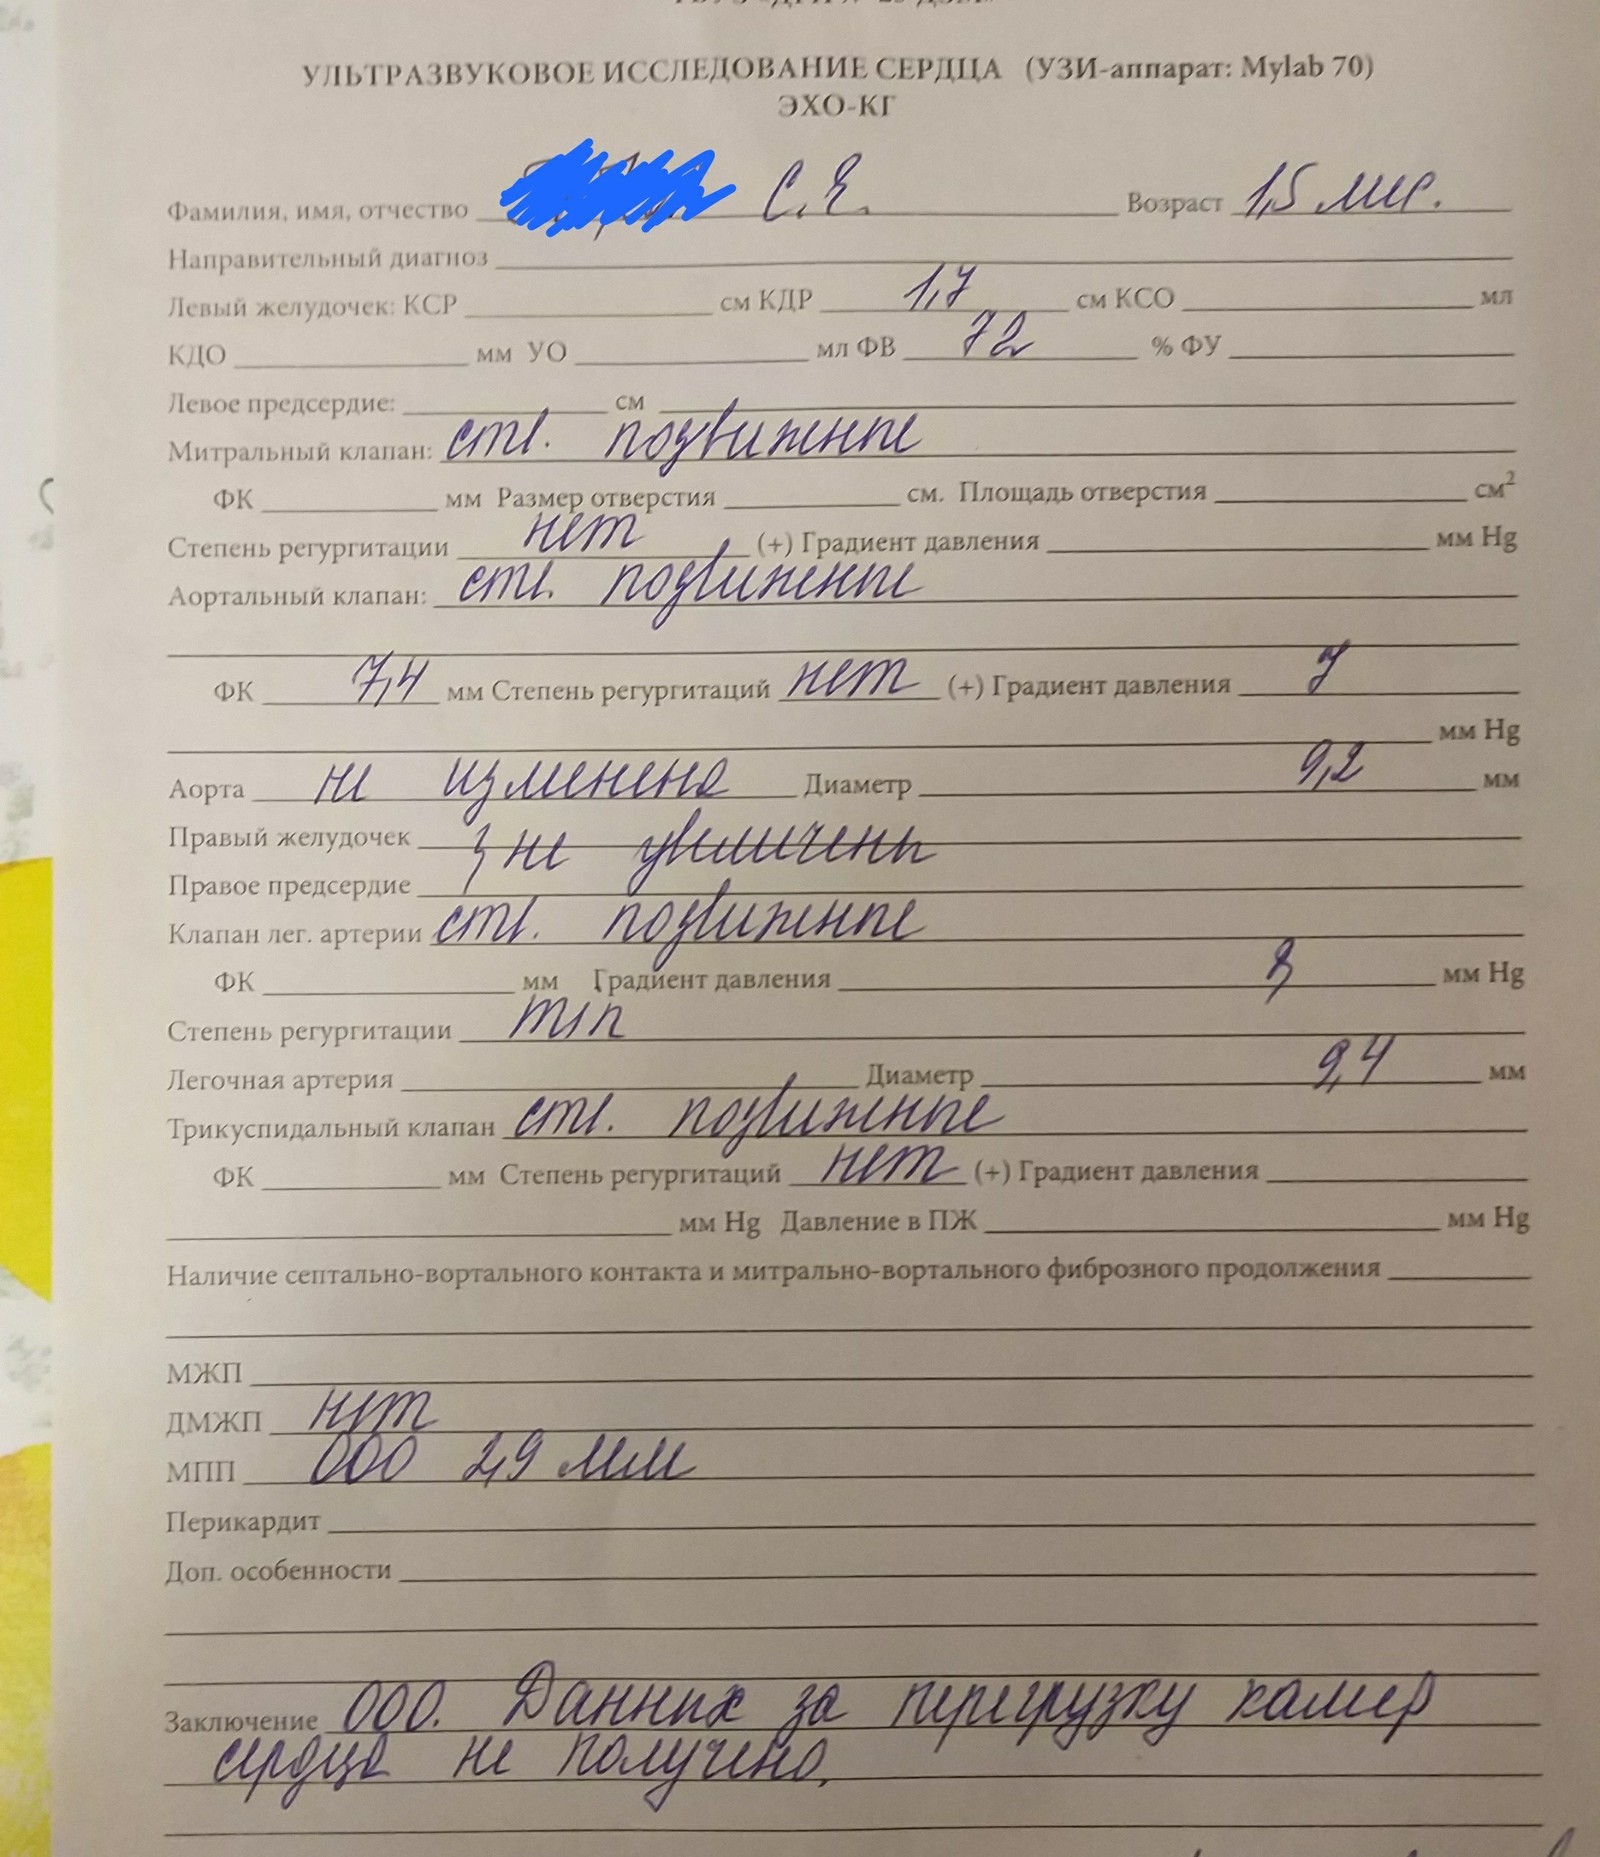 УЛЬТРАЗВУКОВОЕ ИССЛЕДОВАНИЕ СЕРДЦА (УЗИ-аппарат: Mylab 70)
ЭХО-КГ
Фамилия, имя, отчество С.Е. Возраст 1,5 мес.
Направительный диагноз
Левый желудочек: КСР см КДР 1,7 см КСО мл
КДО мм УО мл ФВ 72 % ФУ
Левое предсердие: см
Митральный клапан: ств. подвижные
ФК мм Размер отверстия см. Площадь отверстия см²
Степень регургитации нет (+) Градиент давления мм Hg
Аортальный клапан: ств. подвижные
ФК 7,4 мм Степень регургитаций нет (+) Градиент давления 7
мм Hg
Аорта не изменена Диаметр 9,2 мм
Правый желудочек } не увеличены
Правое предсердие
Клапан лег. артерии ств. подвижные
ФК мм Градиент давления мм Hg
Степень регургитации min
Легочная артерия Диаметр 9,4 мм
Трикуспидальный клапан ств. подвижные
ФК мм Степень регургитаций нет (+) Градиент давления
мм Hg Давление в ПЖ мм Hg
Наличие септально-вортального контакта и митрально-вортального фиброзного продолжения
МЖП
ДМЖП нет
МПП ООО 2,9 мм
Перикардит
Доп. особенности
Заключение ООО. Данных за перегрузку камер
сердца не получено.